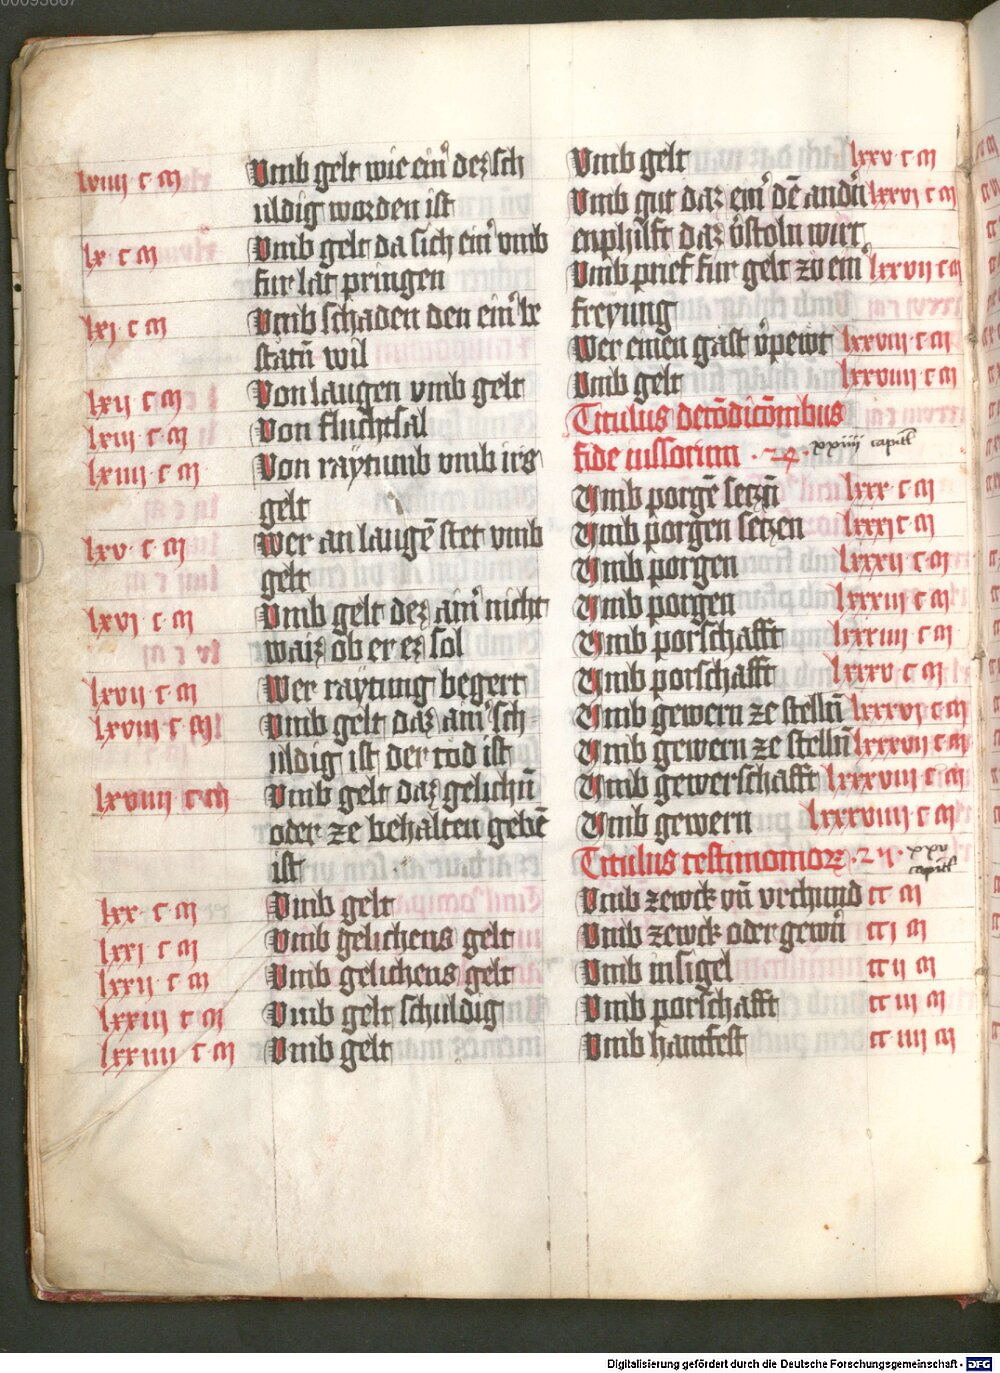 lviiii c m Vmb gelt wie einᵉ dez sch
uldig worden ist
lx c m Vmb gelt da sich einᵉ vmb
fur lat pringen
lxi c m Vmb schaden den einᵉ be
statñ wil
lxii c m Von laugen vmb gelt
lxiii c m Von fluchtsal
lxiiii c m Von raytumb vmb irs
gelt
lxv c m Wer an laugē stet vmb
gelt
lxvi c m Vmb gelt dez ainᵉ nicht
waiz ob er ez sol
lxvii c m Wer raytung begert
lxviii c m Vmb gelt daz ainᵉ sch
uldig ist der tod ist
lxviiii c m Vmb gelt daz gelichñ
oder ze behalten gebē
ist
lxx c m Vmb gelt
lxxi c m Vmb gelichens gelt
lxxii c m Vmb gelichens gelt
lxxiii c m Vmb gelt schuldig
lxxiiii c m Vmb gelt
Vmb gelt lxxv c m
Vmb gut daz einᵉ dē andñ lxxvi c m
enphilft daz v̓stoln wirt
Vmb prief fur gelt zu einᵉ lxxvii c m
freyung
Wer einen gast v̓pewt lxxviii c m
Vmb gelt lxxviiii c m
Titulus de cōdicōnibus
fide iussorum .24. xxiiii capitl
Vmb porgē setzñ lxxx c m
Vmb porgen setzen lxxxi c m
Vmb porgen lxxxii c m
Vmb porgen lxxxiii c m
Vmb porschafft lxxxiiii c m
Vmb porschafft lxxxv c m
Vmb gewern ze stellñ lxxxvi c m
Vmb gewern ze stellñ lxxxvii c m
Vmb gewerschafft lxxxviii c m
Vmb gewern lxxxviiii c m
Titulus testimonioꝝ .25. xxv
capitl
Vmb zewck vñ vrchund cc m
Vmb zewck oder gewñ cc i m
Vmb insigel cc ii m
Vmb porschafft cc iii m
Vmb hantfest cc iiii m
Digitalisierung gefördert durch die Deutsche Forschungsgemeinschaft - DFG